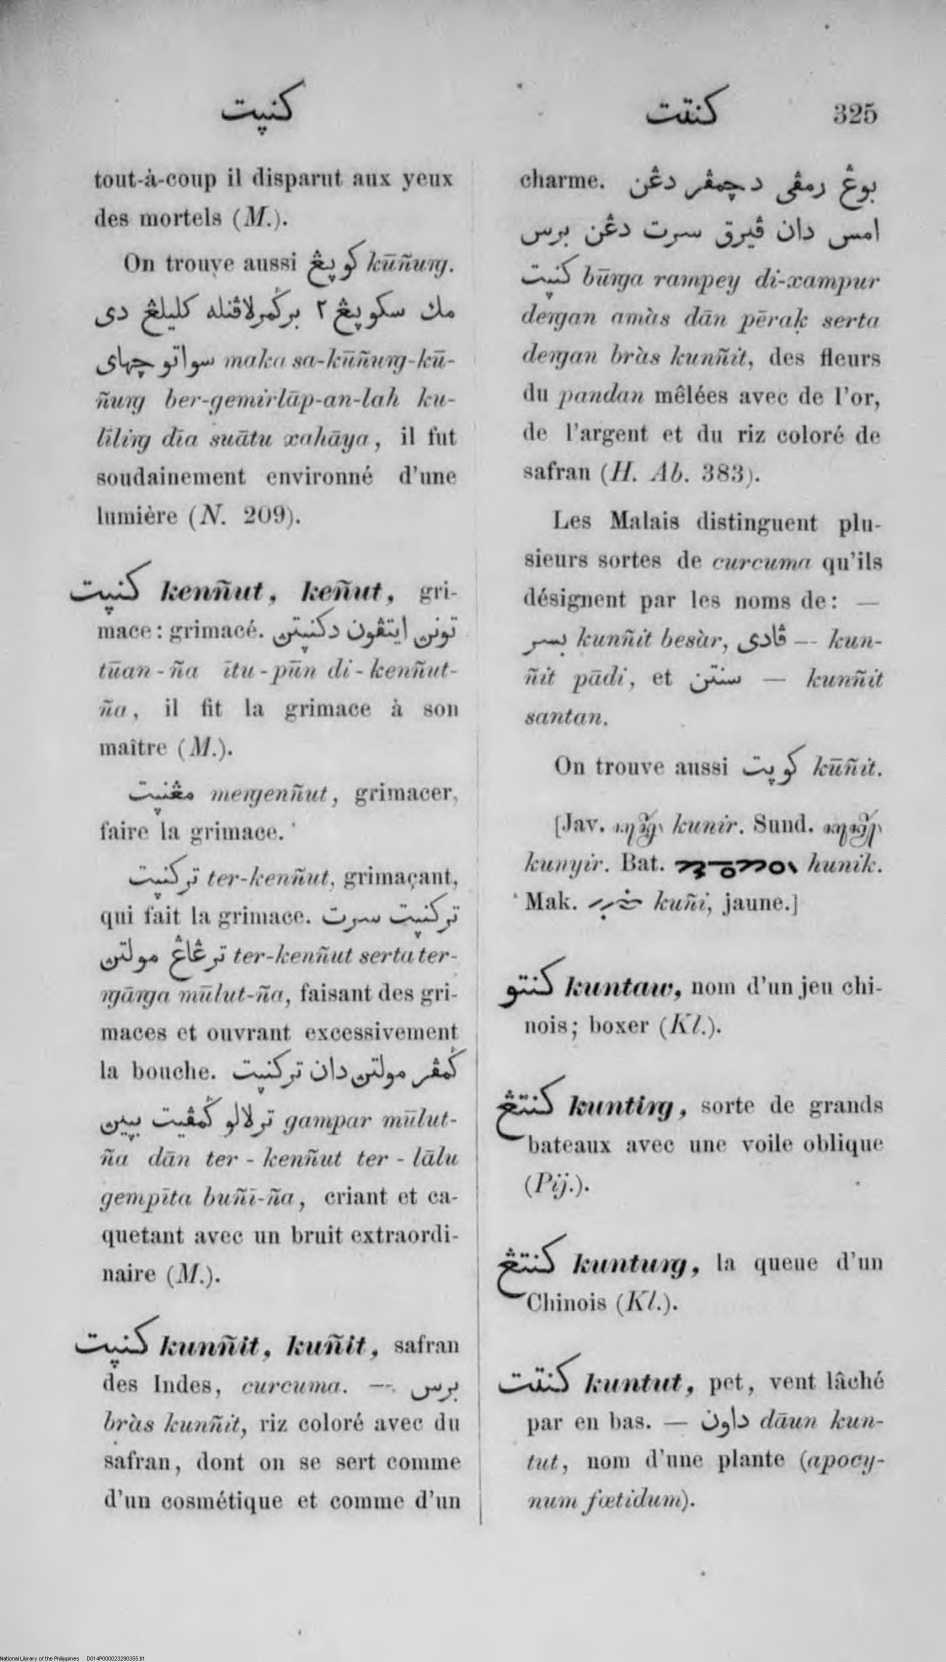 كنپت
كنتت 325
tout-à-coup il disparut aux yeux
des mortels (M.).
On trouve aussi كوڽڠ kūñuṛg.
مك سكوڽڠ ٢ برݢمرلاڤنله كليلڠ دى
سواتو چهاى maka sa-kūñuṛg-kū-
ñuṛg ber-gemirlāp-an-lah ku-
līliṛg dīa suātu xahāya, il fut
soudainement environné d'une
lumière (N. 209).
كنپت kennñut, keñut, gri-
mace: grimacé. تونن ايتڤون دكنپتن
tūan-ña ītu-pūn di-kennñut-
ña, il fit la grimace à son
maître (M.).
مڠنپت meṛgennñut, grimacer,
faire la grimace.
تركنپت ter-kennñut, grimaçant,
qui fait la grimace. تركنپت سرت
ترڠاڠ مولتن ter-kennñut serta ter-
ṛgāṛga mūlut-ña, faisant des gri-
maces et ouvrant excessivement
la bouche. ݢمڤر مولتن دان تركنپت
ترلالو ݢمڤيت بپين gampar mūlut-
ña dān ter-kennñut ter-lālu
gempīta buñī-ña, criant et ca-
quetant avec un bruit extraordi-
naire (M.).
كنپت kunnñit, kuñit, safran
des Indes, curcuma. — برس
bràs kunnñit, riz coloré avec du
safran, dont on se sert comme
d'un cosmétique et comme d'un
charme. بوڠ رمڤى دچمڤر دڠن
امس دان ڤيرق سرت دڠن برس
كنپت būṛga rampey di-xampur
deṛgan amàs dān pēraḳ serta
deṛgan bràs kunnñit, des fleurs
du pandan mêlées avec de l'or,
de l'argent et du riz coloré de
safran (H. Ab. 383).
Les Malais distinguent plu-
sieurs sortes de curcuma qu'ils
désignent par les noms de: —
بسر kunnñit besàr, ڤادى — kun-
ñit pādi, et سنتن — kunnñit
santan.
On trouve aussi كوڽت kūñit.
[Jav. kunir. Sund.
kunyir. Bat. hunik.
Mak. kuñi, jaune.]
كنتو kuntaw, nom d'un jeu chi-
nois; boxer (Kl.).
كنتڠ kuntiṛg, sorte de grands
bateaux avec une voile oblique
(Pij.).
كنتڠ kuntuṛg, la queue d'un
Chinois (Kl.).
كنتت kuntut, pet, vent lâché
par en bas. — داون dāun kun-
tut, nom d'une plante (apocy-
num fœtidum).
National Library of the Philippines